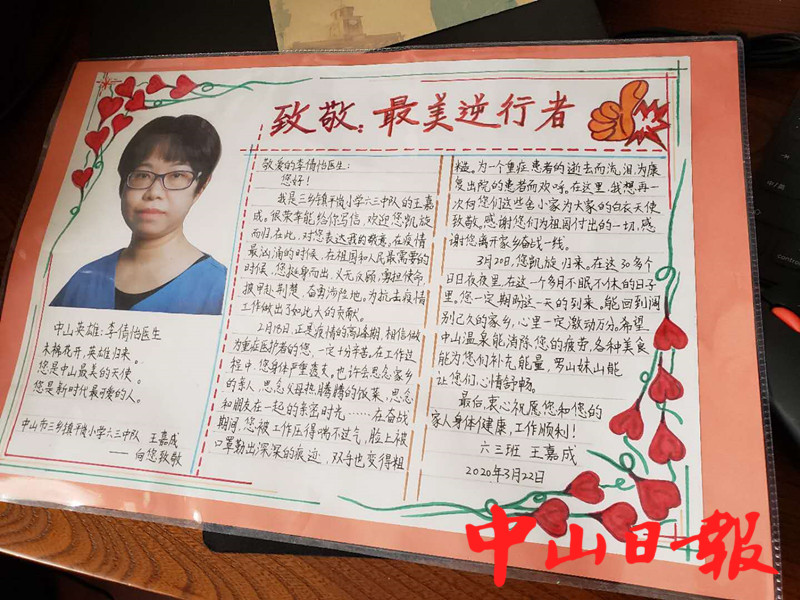 致敬:最美逆行者
中山英雄:李倩怡医生
木棉花开,英雄归来。
您是中山最美的天使。
您是新时代最可爱的人。
中山市三乡镇平岗小学六三中队 王嘉成
——向您致敬
敬爱的李倩怡医生:
您好!
我是三乡镇平岗小学六三中队的王嘉
成。很荣幸能给你写信,欢迎您凯旋
而归。在此,对您表达我的敬意,在疫情
最汹涌的时候,在祖国和人民最需要的
时候,您挺身而出,义无反顾,勇担使命,
披甲赴荆楚,奋勇涉险地。为抗击疫情
工作做出了如此大的贡献。
2月18日,正是疫情的高峰期,相信做
为重症医护者的您,一定十分辛苦。在工作过
程中,您身体严重透支,也许会思念家乡
的亲人,思念父母热腾腾的饭菜,思念
和朋友在一起的亲密时光……在奋战
期间,您被工作压得喘不过气,脸上被
口罩勒出深深的痕迹,双手也变得粗
糙。为一个重症患者的逝去而流泪,为康
复出院的患者而欢呼。在这里,我想再一
次向您们这些舍小家为大家的白衣天使
致敬。感谢您们为祖国付出的一切,感
谢您离开家乡奋战一线。
3月20日,您凯旋归来。在这30多个
日日夜夜里,在这一个多月不眠不休的日子
里。您一定期盼这一天的到来。能回到阔
别已久的家乡,心里一定激动万分。希望
中山温泉能消除您的疲劳,各种美食
能为您们补充能量,罗山妹山能
让您们心情舒畅。
最后,衷心祝愿您和您的
家人身体健康,工作顺利!
六三班 王嘉成
2020年3月22日
中山日報